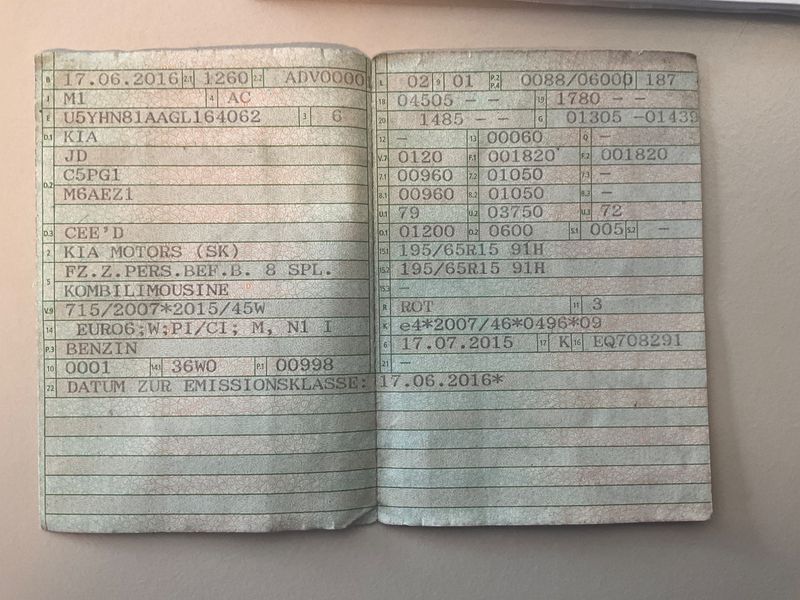 B 17.06.2016 2.1 1260 2.2 ADV0000
J M1 4 AC
E U5YHN81AAGL164062 3 6
D.1 KIA
JD
D.2 C5PG1
M6AEZ1
D.3 CEE'D
2 KIA MOTORS (SK)
5 FZ.Z.PERS.BEF.B. 8 SPL.
KOMBILIMOUSINE
V.9 715/2007*2015/45W
14 EURO6;W;PI/CI; M, N1 I
P.3 BENZIN
10 0001 14.1 36W0 P.1 00998
22 DATUM ZUR EMISSIONSKLASSE: 17.06.2016*
L 02 9 01 P.2 P.4 0088/06000 187
18 04505 – – 19 1780 – –
20 1485 – – G 01305 –01439
12 – 13 00060 Q –
V.7 0120 F.1 001820 F.2 001820
7.1 00960 7.2 01050 7.3 –
8.1 00960 8.2 01050 8.3 –
U.1 79 U.2 03750 U.3 72
O.1 01200 O.2 0600 S.1 005 S.2 –
15.1 195/65R15 91H
15.2 195/65R15 91H
15.3 –
R ROT 11 3
K e4*2007/46*0496*09
6 17.07.2015 17 K 16 EQ708291
21 –